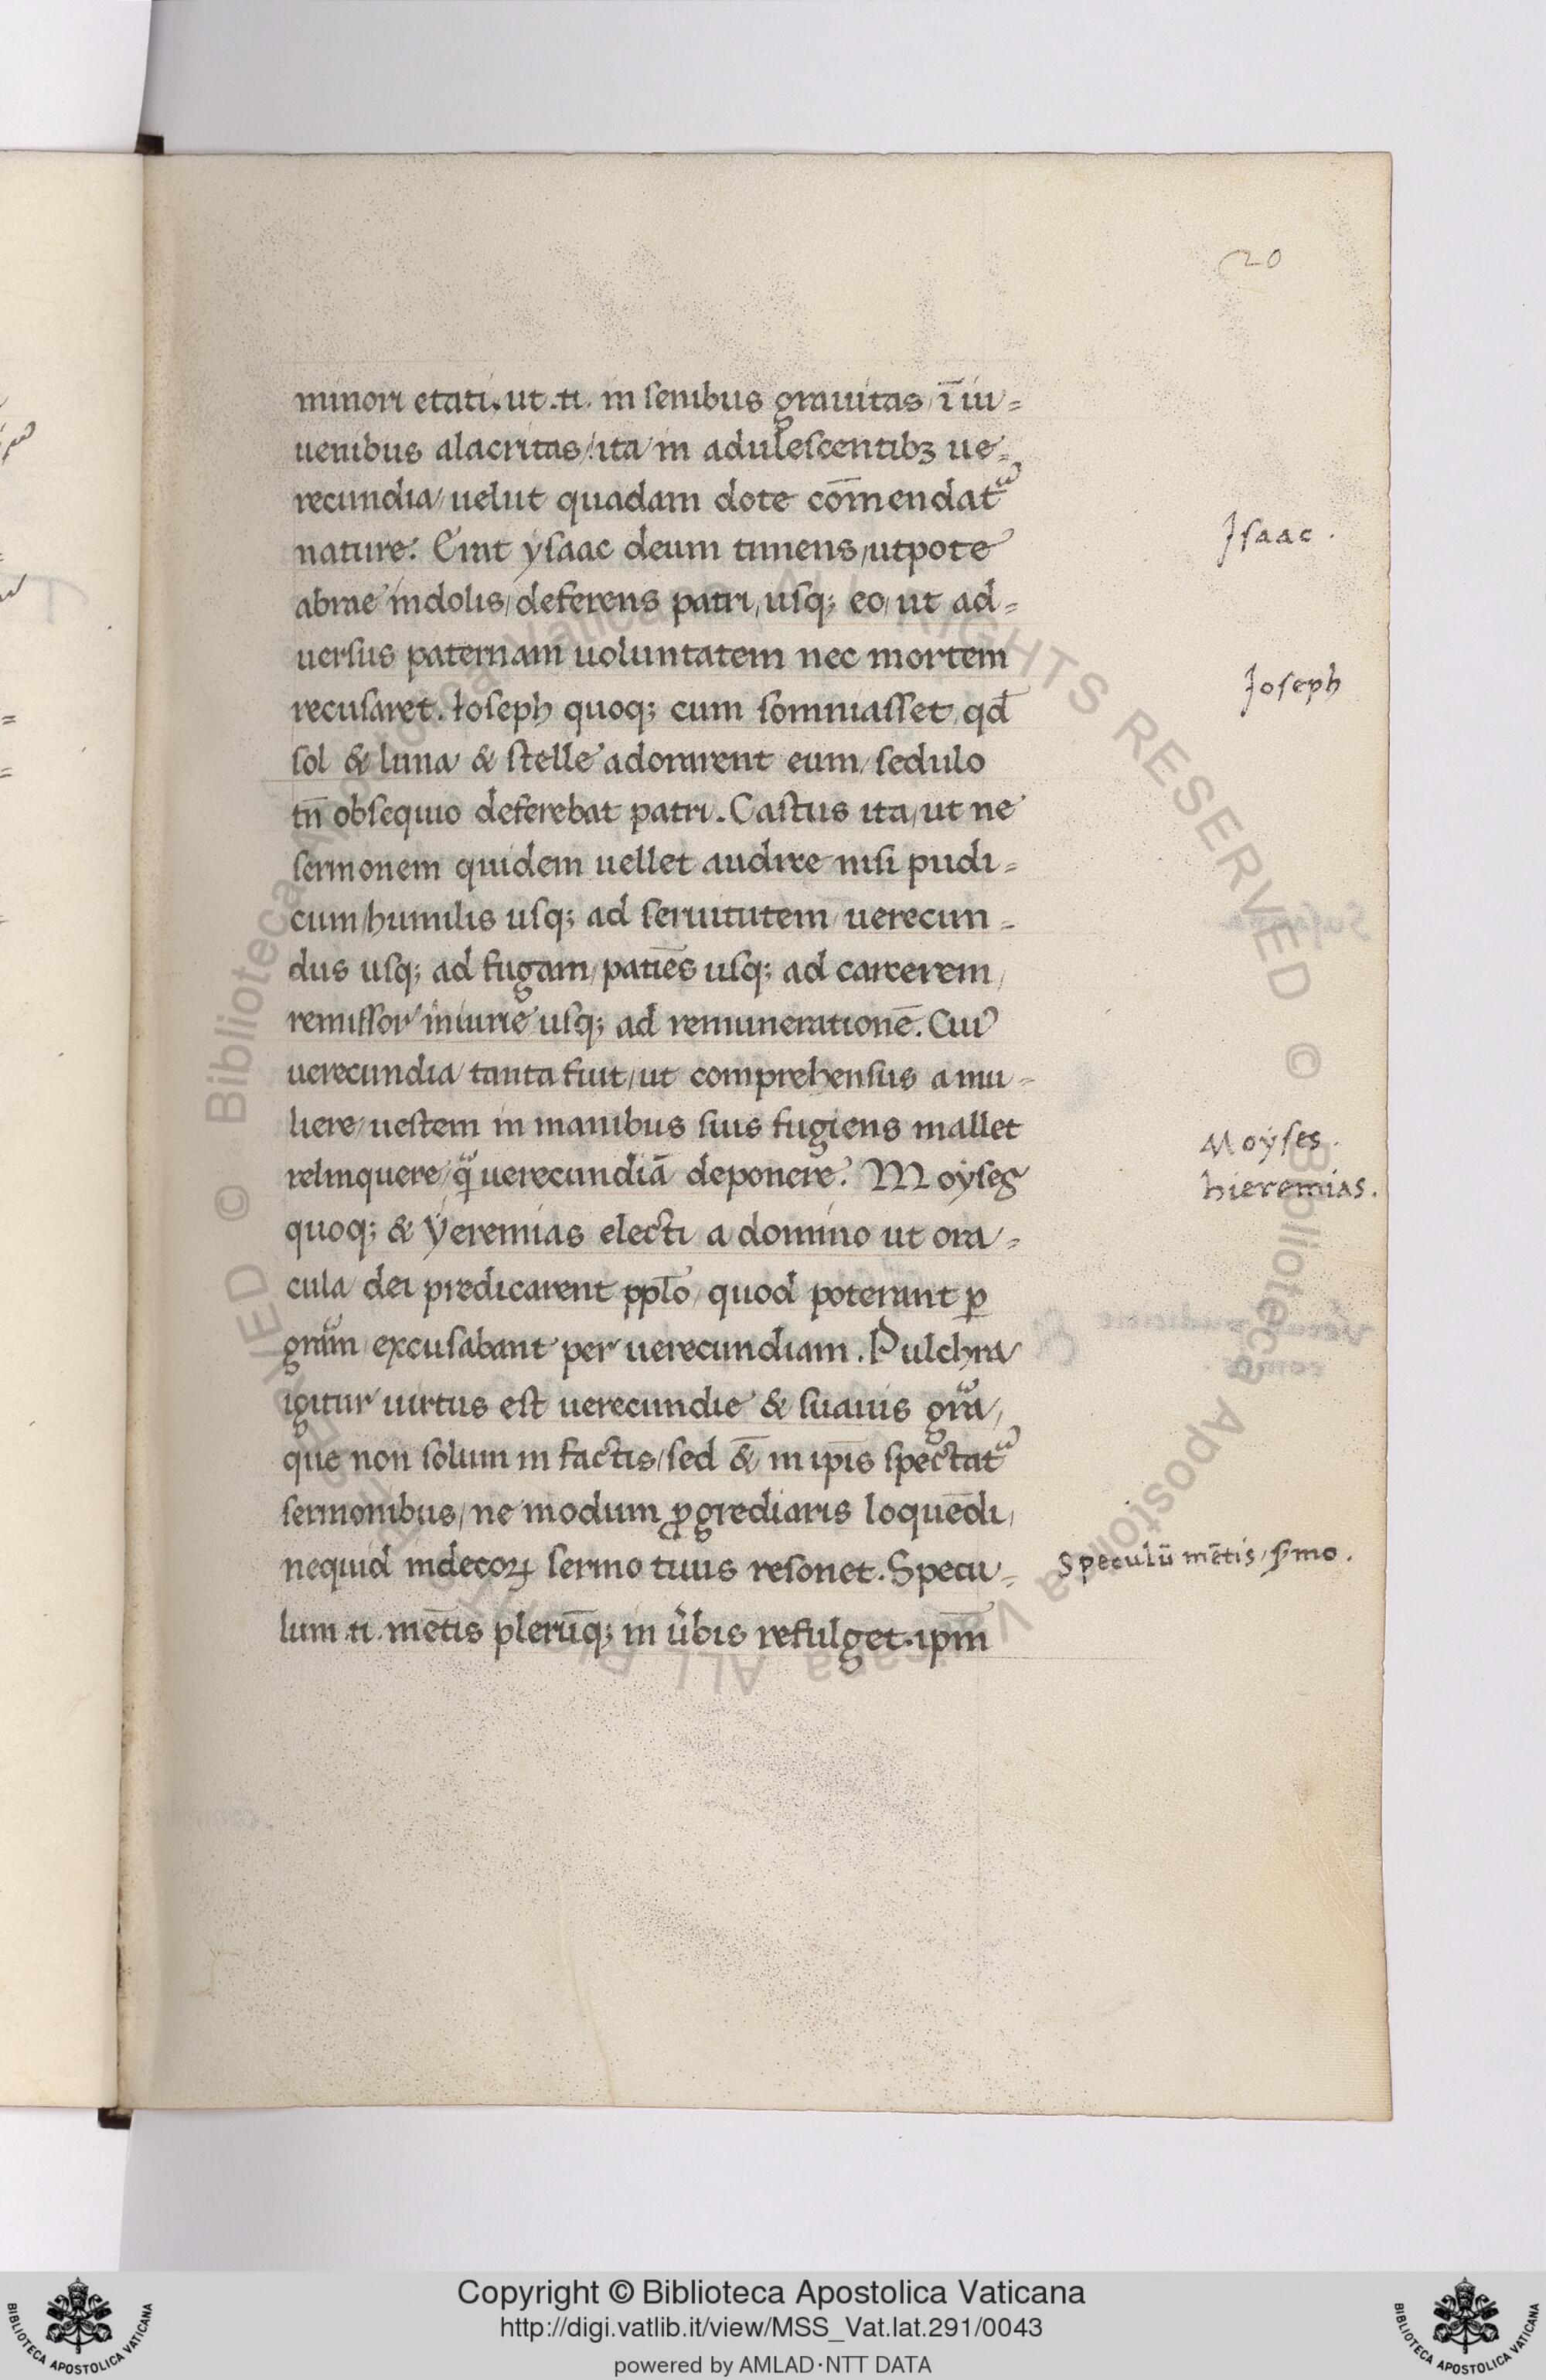 20
minori etati. ut .n. in senibus grauitas / ī iu=
uenibus alacritas /. ita in adulescentibꝫ ue=
recundia / uelut quadam dote cōmendatᷣ
nature. Erat ysaac deum timens / utpote
abrae indolis / deferens patri / usq; eo / ut ad=
uersus paternam uoluntatem nec mortem
recusaret. Ioseph quoq; cum somniasset / qđ
sol & luna & stelle adorarent eum / sedulo
tn̄ obsequio deferebat patri. Castus ita / ut ne
sermonem quidem uellet audire nisi pudi=
cum / humilis usq; ad seruitutem / uerecun=
dus usq; ad fugam / patiēs usq; ad carcerem /
remissor iniurie usq; ad remunerationē. Cuiꝰ
uerecundia tanta fuit / ut comprehensus a mu=
liere / uestem in manibus suis fugiens mallet
relinquere / qᷓ uerecundiā deponere. Moyses
quoq; & Yeremias electi a domino ut ora=
cula dei predicarent pplo / quod poterant ꝑ
gr̄am / excusabant per uerecundiam. Pulchra
igitur uirtus est uerecundie & suauis gr̄a /
que non solum in factis / sed &̄ in ip̄is spectatᷣ
sermonibus / ne modum ꝓgrediaris loquēdi /
nequid indecoꝝ sermo tuus resonet. Specu=
lum .n. mētis plerūq; in u̇bis refulget. ip̄m
Isaac.
Ioseph
Moyses.
hieremias.
Speculū mētis / s̱mo.
Copyright © Biblioteca Apostolica Vaticana
http://digi.vatlib.it/view/MSS_Vat.lat.291/0043
powered by AMLAD·NTT DATA
BIBLIOTECA APOSTOLICA VATICANA
BIBLIOTECA APOSTOLICA VATICANA
© Biblioteca Apostolica Vaticana ALL RIGHTS RESERVED © Biblioteca Apostolica Vaticana ALL RIGHTS RESERVED